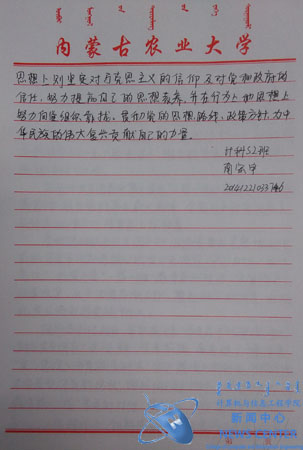 内蒙古农业大学
思想上则坚定对马克思主义的信仰及对党和政府的
信任,努力提高自己的思想素养,并在行为上和思想上
努力向党组织靠拢,贯彻党的思想路线,政策方针,为中
华民族的伟大复兴贡献自己的力量。
计科52班
计算机与信息工程学院
新闻中心
NEWS CENTER
第 页